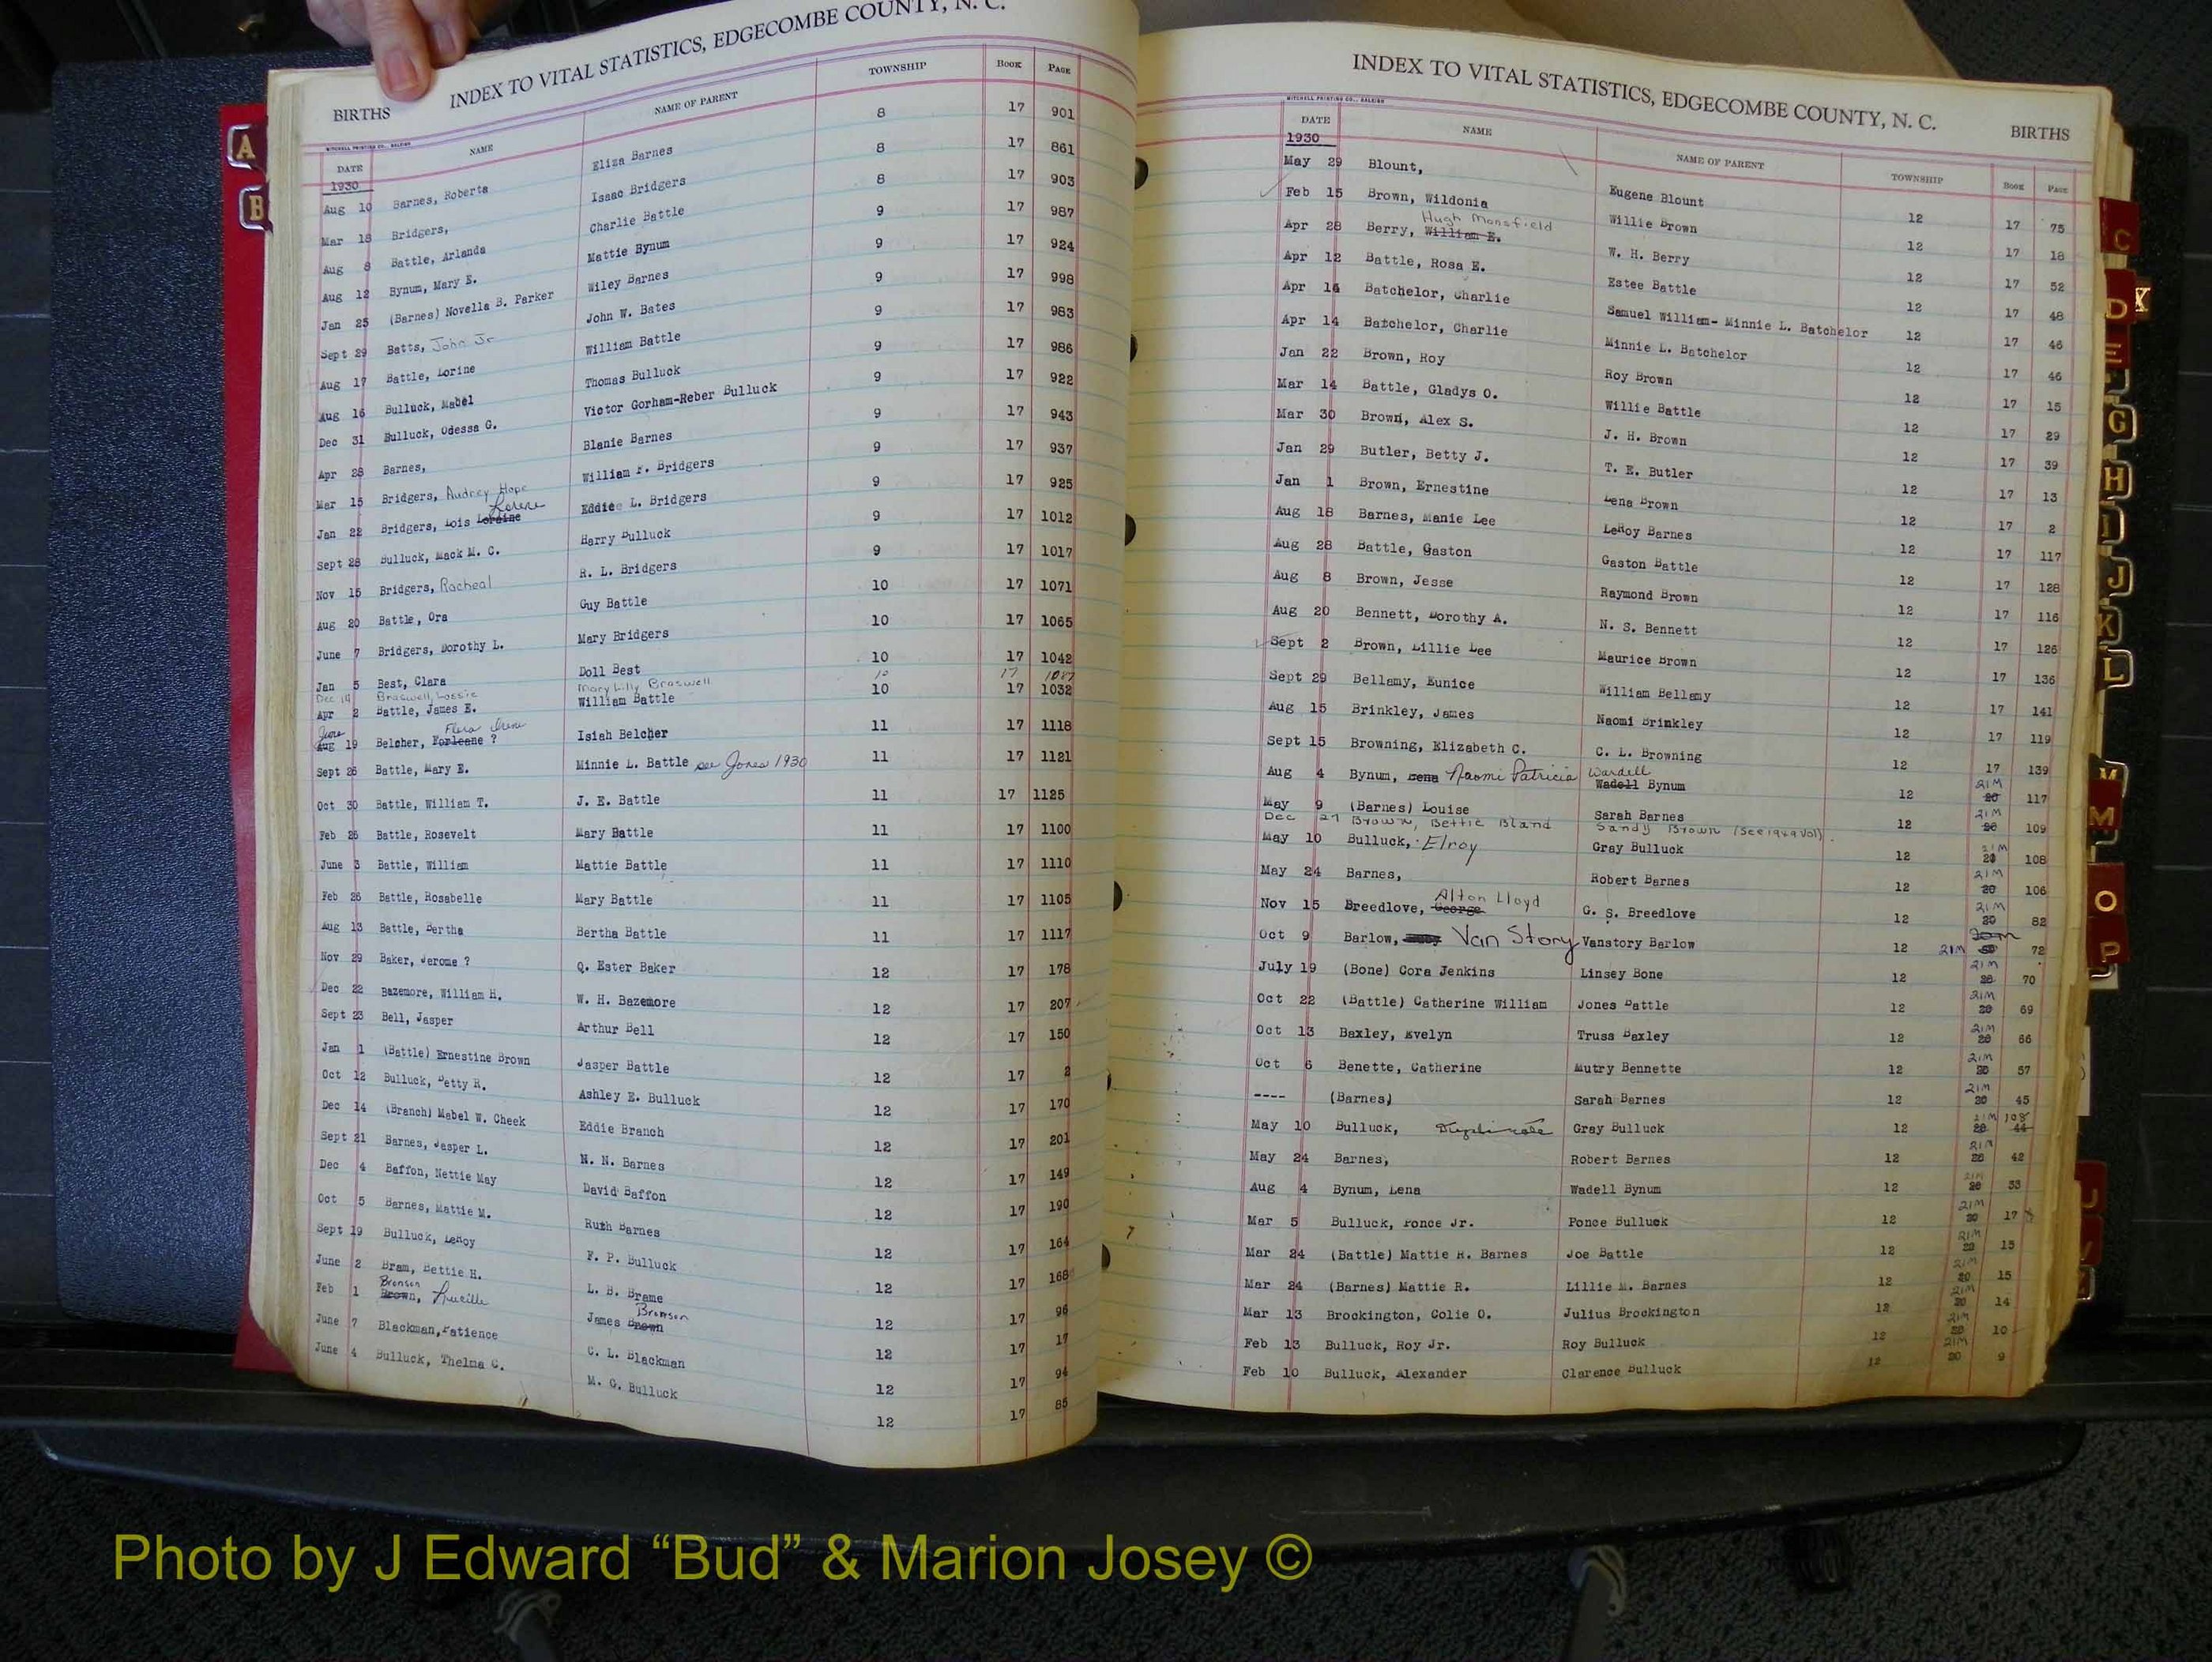 INDEX TO VITAL STATISTICS, EDGECOMBE COUNTY, N. C.
BIRTHS
MITCHELL PRINTING CO., RALEIGH
DATE NAME NAME OF PARENT TOWNSHIP BOOK PAGE
1930
Aug 10 Barnes, Roberta Eliza Barnes 8 17 901
Mar 18 Bridgers, Isaac Bridgers 8 17 861
Aug 8 Battle, Arlanda Charlie Battle 8 17 903
Aug 12 Bynum, Mary E. Mattie Bynum 9 17 987
Jan 25 (Barnes) Novella B. Parker Wiley Barnes 9 17 924
Sept 29 Batts, John Jr John W. Bates 9 17 998
Aug 17 Battle, Lorine William Battle 9 17 983
Aug 16 Bulluck, Mabel Thomas Bulluck 9 17 986
Dec 31 Bulluck, Odessa G. Victor Gorham-Reber Bulluck 9 17 922
Apr 28 Barnes, Blanie Barnes 9 17 943
Mar 15 Bridgers, Audrey Hope William F. Bridgers 9 17 937
Jan 22 Bridgers, Lois Loraine Lorene Eddie L. Bridgers 9 17 925
Sept 28 Bulluck, Mack M. C. Harry Bulluck 9 17 1012
Nov 15 Bridgers, Racheal R. L. Bridgers 9 17 1017
Aug 20 Battle, Ora Guy Battle 10 17 1071
June 7 Bridgers, Dorothy L. Mary Bridgers 10 17 1065
Jan 5 Best, Clara Doll Best 10 17 1042
Dec 14 Braswell, Lossie Mary Lilly Braswell 10 17 1087
Apr 2 Battle, James E. William Battle 10 17 1032
June Aug 19 Belcher, Forleane ? Flora Irene Isiah Belcher 11 17 1118
Sept 26 Battle, Mary E. Minnie L. Battle see Jones 1930 11 17 1121
Oct 30 Battle, William T. J. E. Battle 11 17 1125
Feb 25 Battle, Rosevelt Mary Battle 11 17 1100
June 3 Battle, William Mattie Battle 11 17 1110
Feb 26 Battle, Rosabelle Mary Battle 11 17 1105
Aug 13 Battle, Bertha Bertha Battle 11 17 1117
Nov 29 Baker, Jerome ? Q. Ester Baker 12 17 178
Dec 22 Bazemore, William H. W. H. Bazemore 12 17 207
Sept 23 Bell, Jasper Arthur Bell 12 17 150
Jan 1 (Battle) Ernestine Brown Jasper Battle 12 17 2
Oct 12 Bulluck, Betty R. Ashley E. Bulluck 12 17 170
Dec 14 (Branch) Mabel W. Cheek Eddie Branch 12 17 201
Sept 21 Barnes, Jasper L. N. N. Barnes 12 17 149
Dec 4 Baffon, Nettie May David Baffon 12 17 190
Oct 5 Barnes, Mattie M. Ruth Barnes 12 17 164
Sept 19 Bulluck, LeRoy F. P. Bulluck 12 17 168
June 2 Bram, Bettie H. L. B. Brame 12 17 96
Feb 1 Brown, Bronson Lucille James Brown Bronson 12 17 17
June 7 Blackman, Patience C. L. Blackman 12 17 94
June 4 Bulluck, Thelma C. M. G. Bulluck 12 17 85
INDEX TO VITAL STATISTICS, EDGECOMBE COUNTY, N. C.
BIRTHS
MITCHELL PRINTING CO., RALEIGH
DATE NAME NAME OF PARENT TOWNSHIP BOOK PAGE
1930
May 29 Blount, Eugene Blount 12 17 75
Feb 15 Brown, Wildonia Willie Brown 12 17 18
Apr 28 Berry, William E. Hugh Mansfield W. H. Berry 12 17 52
Apr 12 Battle, Rosa E. Estee Battle 12 17 48
Apr 14 Batchelor, Charlie Samuel William- Minnie L. Batchelor 12 17 46
Apr 14 Batchelor, Charlie Minnie L. Batchelor 12 17 46
Jan 22 Brown, Roy Roy Brown 12 17 15
Mar 14 Battle, Gladys O. Willie Battle 12 17 29
Mar 30 Brown, Alex S. J. H. Brown 12 17 39
Jan 29 Butler, Betty J. T. E. Butler 12 17 13
Jan 1 Brown, Ernestine Lena Brown 12 17 2
Aug 18 Barnes, Manie Lee LeRoy Barnes 12 17 117
Aug 28 Battle, Gaston Gaston Battle 12 17 128
Aug 8 Brown, Jesse Raymond Brown 12 17 116
Aug 20 Bennett, Dorothy A. N. S. Bennett 12 17 126
Sept 2 Brown, Lillie Lee Maurice Brown 12 17 136
Sept 29 Bellamy, Eunice William Bellamy 12 17 141
Aug 15 Brinkley, James Naomi Brinkley 12 17 119
Sept 15 Browning, Elizabeth C. C. L. Browning 12 17 139
Aug 4 Bynum, Lena Naomi Patricia Wardell Wadell Bynum 12 21M 20 117
May 9 (Barnes) Louise Sarah Barnes 12 21M 20 109
Dec 27 Brown, Bettie Bland Sandy Brown (See 1929 Vol)
May 10 Bulluck, Elroy Gray Bulluck 12 21M 20 108
May 24 Barnes, Robert Barnes 12 21M 20 106
Nov 15 Breedlove, George Alton Lloyd G. S. Breedlove 12 21M 20 82
Oct 9 Barlow, Van Story Vanstory Barlow 12 21M 20 72
July 19 (Bone) Cora Jenkins Linsey Bone 12 21M 20 70
Oct 22 (Battle) Catherine William Jones Battle 12 21M 20 69
Oct 13 Baxley, Evelyn Truss Baxley 12 21M 20 66
Oct 6 Benette, Catherine Mutry Bennette 12 21M 20 57
---- (Barnes) Sarah Barnes 12 21M 20 45
May 10 Bulluck, Duplicate Gray Bulluck 12 21M 108 20 44
May 24 Barnes, Robert Barnes 12 21M 20 42
Aug 4 Bynum, Lena Wadell Bynum 12 21M 20 33
Mar 5 Bulluck, Ponce Jr. Ponce Bulluck 12 21M 20 17
Mar 24 (Battle) Mattie R. Barnes Joe Battle 12 21M 20 15
Mar 24 (Barnes) Mattie R. Lillie M. Barnes 12 21M 20 15
Mar 13 Brockington, Colie O. Julius Brockington 12 21M 20 14
Feb 13 Bulluck, Roy Jr. Roy Bulluck 12 21M 20 10
Feb 10 Bulluck, Alexander Clarence Bulluck 12 21M 20 9
A
B
C
D
E
G
H
I
J
K
L
M
M
O
P
U
Photo by J Edward “Bud” & Marion Josey ©